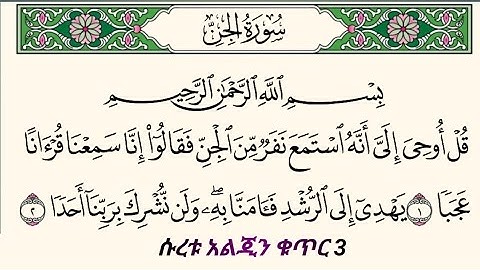 سُورَةُ الجِنِّ
بِسْمِ اللَّهِ الرَّحْمَٰنِ الرَّحِيمِ
قُلْ أُوحِيَ إِلَيَّ أَنَّهُ ٱسْتَمَعَ نَفَرٌ مِّنَ ٱلْجِنِّ فَقَالُوٓا۟ إِنَّا سَمِعْنَا قُرْءَانًا
عَجَبًا ١ يَهْدِىٓ إِلَى ٱلرُّشْدِ فَـَٔامَنَّا بِهِۦ ۖ وَلَن نُّشْرِكَ بِرَبِّنَآ أَحَدًا ٢
ሱረቱ አልጂን ቁጥር 3